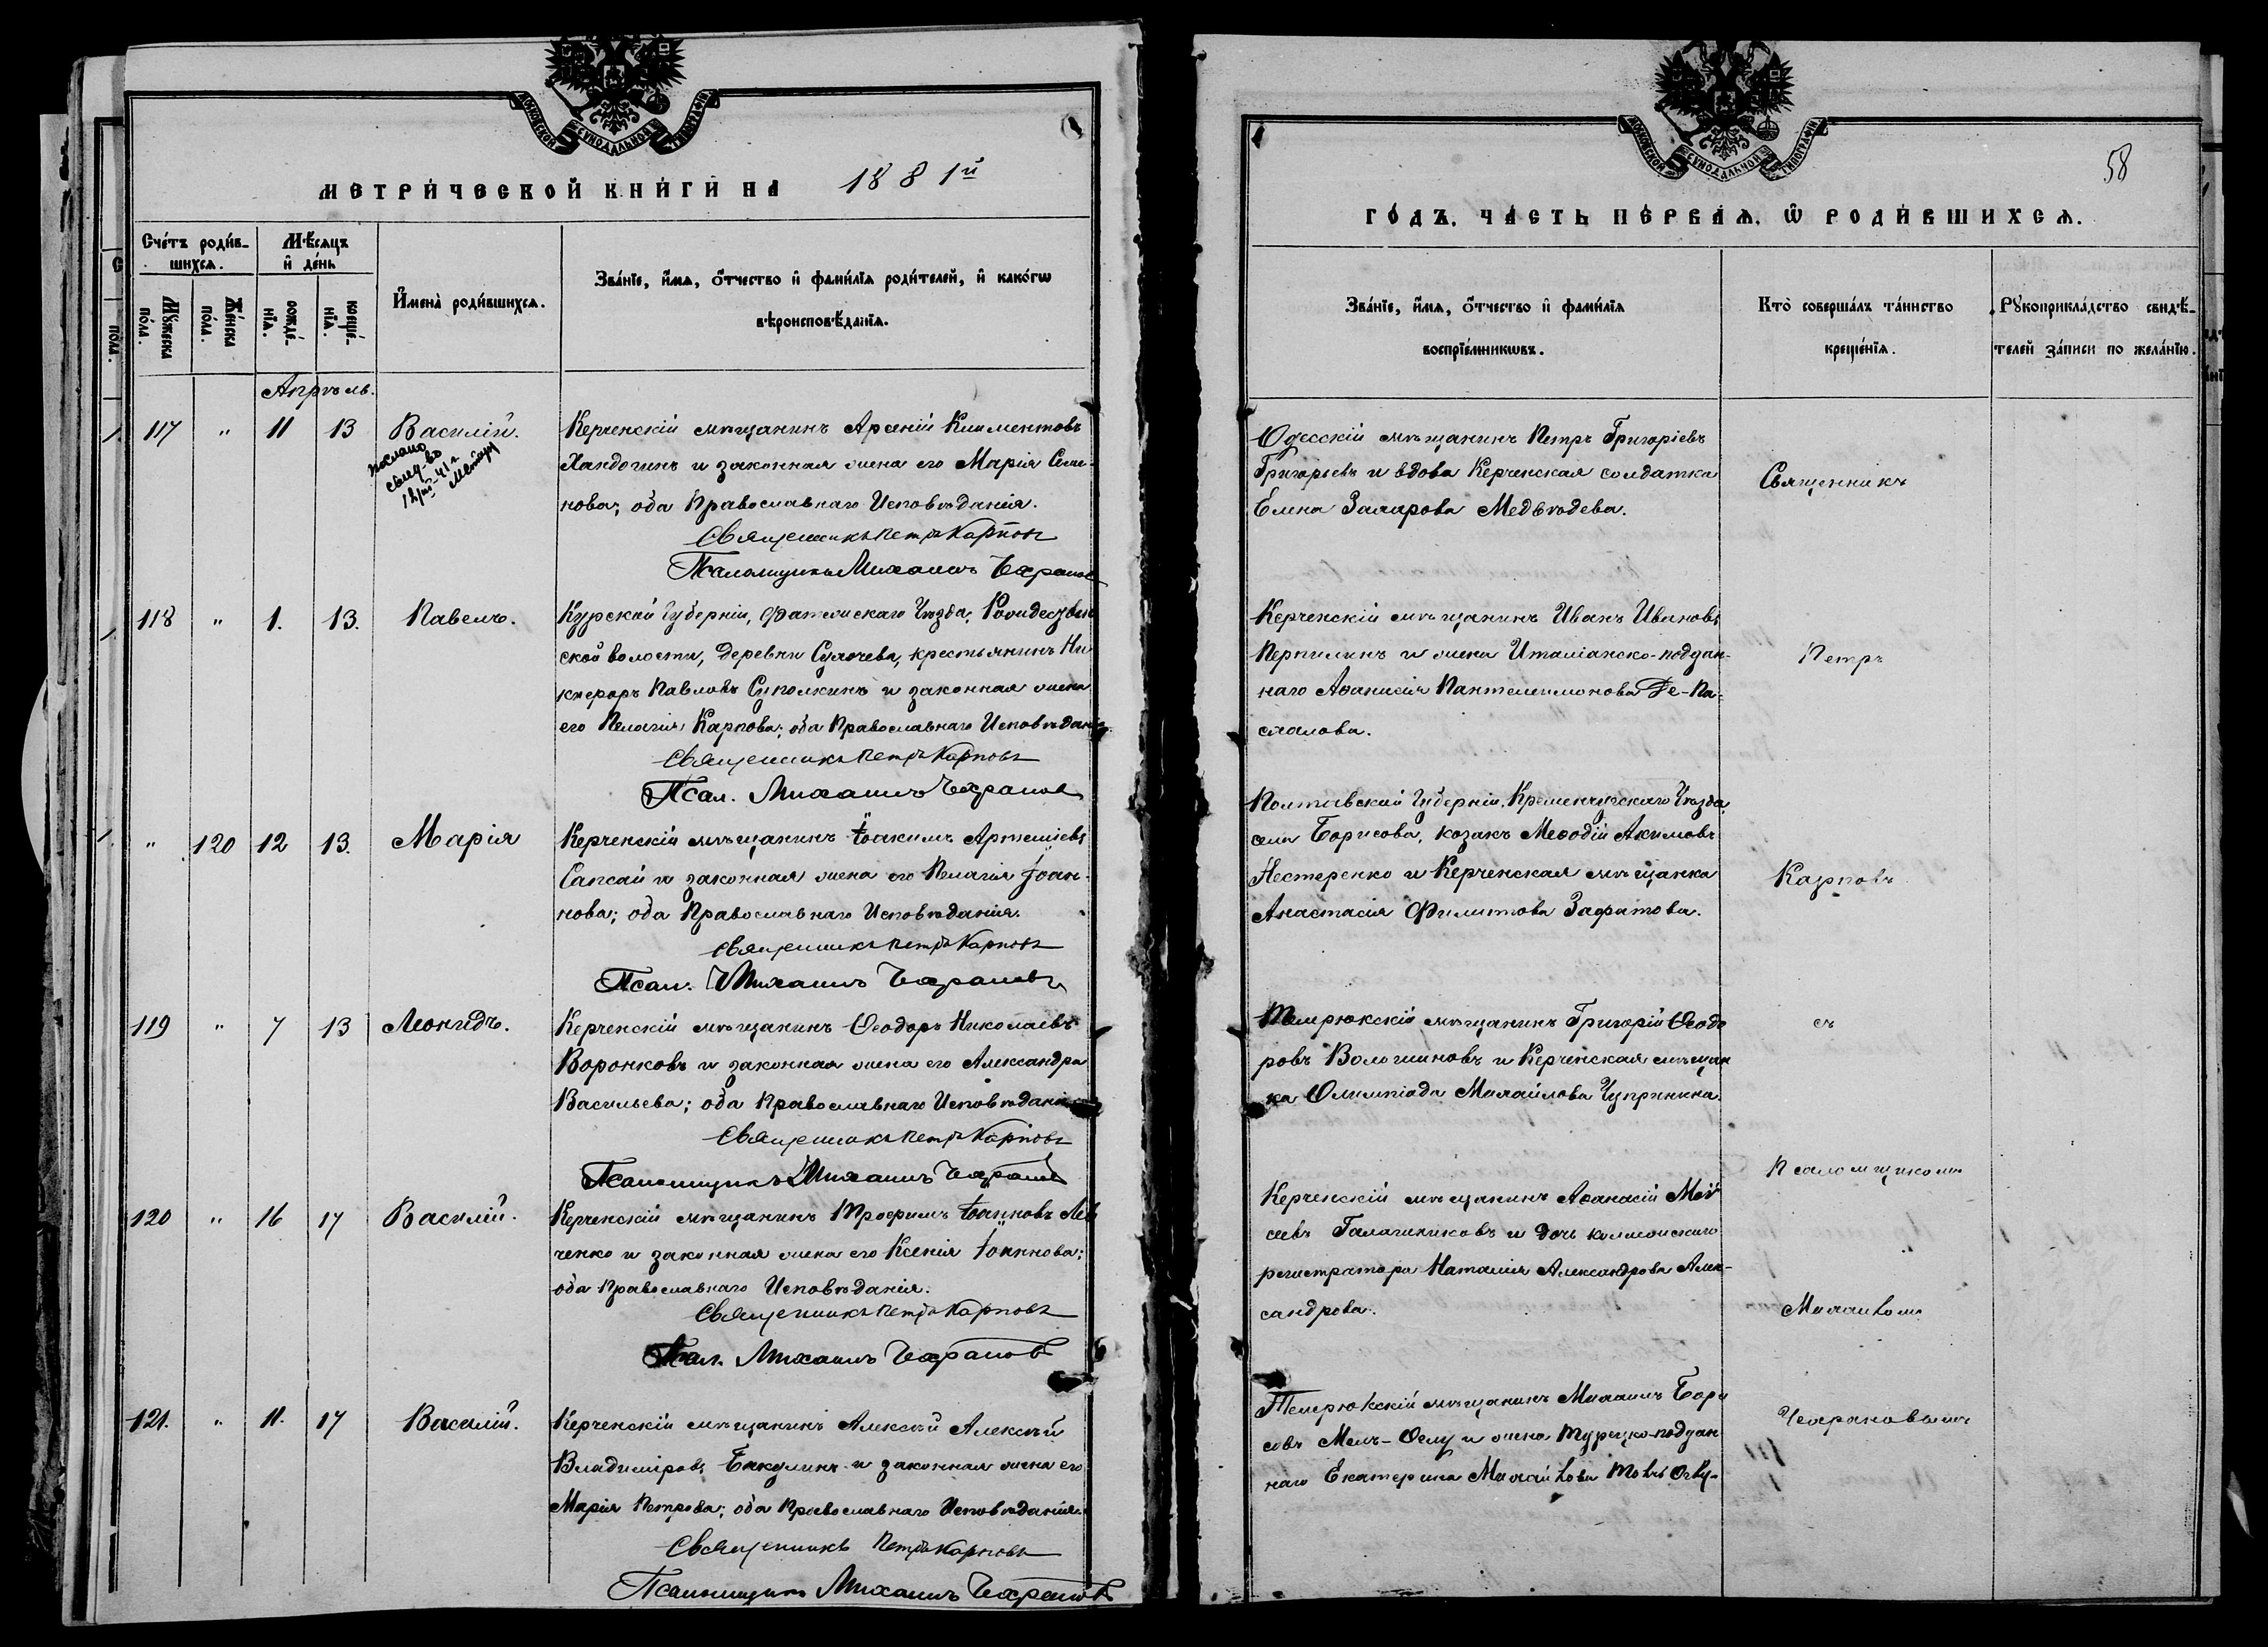 МОСКОВСКОЙ СѴНОДАЛЬНОЙ ТИПОГРАФІИ
МЕТРИ́ЧЕСКОЙ КНИ́ГИ НА 1881й
Сче́тъ роди́в-
шихсѧ.
Мѣ́сѧцъ
и҆ де́нь
И҆мена̀ роди́вшихсѧ.
Зва́нїе, и҆́мѧ, ѻ҆́тчество и҆ фами́лїѧ роди́телей, и҆ како́гѡ
вѣроисповѣ́данїѧ.
Мꙋ́жеска
по́ла.
Же́нска
по́ла.
рожде́-
нїѧ.
креще́-
нїѧ.
Апрѣль.
117 " 11 13 Василій.
послано
свид-во
Керченскій мѣщанинъ Арсеній Климентовъ
Хандогинъ и законная жена его Марія Семе-
нова; оба Православнаго Исповѣданія.
Священникъ Петръ Карповъ
Псаломщикъ Михаилъ Чехрановъ
118 " 1. 13. Павелъ.
Курской Губерніи, Фатежскаго Уѣзда,
ской волости, деревни Сухочева, крестьянинъ Ни-
кифоръ Павловъ Суполкинъ и законная жена
его Пелагія Карпова; оба Православнаго Исповѣданія
Священникъ Петръ Карповъ
Псал. Михаилъ Чехрановъ
" 120 12 13. Марія
Керченскій мѣщанинъ Іоакимъ Артеміевъ
Сапсай и законная жена его Пелагія Іоан-
нова; оба Православнаго Исповѣданія.
Священникъ Петръ Карповъ
Псал. Михаилъ Чехрановъ
119 " 7 13 Леонидъ.
Керченскій мѣщанинъ Ѳеодоръ Николаевъ
Воронковъ и законная жена его Александра
Васильева; оба Православнаго Исповѣданія
Священникъ Петръ Карповъ
Псаломщикъ Михаилъ Чехрановъ
120 " 16 17 Василій.
Керченскій мѣщанинъ Трофимъ Іоанновъ Лев-
ченко и законная жена его Ксенія Іоаннова;
оба Православнаго Исповѣданія.
Священникъ Петръ Карповъ
Псал. Михаилъ Чехрановъ
121. " 11. 17 Василій.
Керченскій мѣщанинъ Алексѣй Алексѣй
Владиміровъ Бакулинъ и законная жена его
Марія Петрова; оба Православнаго Исповѣданія.
Священникъ Петръ Карповъ
Псаломщикъ Михаилъ Чехрановъ
МОСКОВСКОЙ СѴНОДАЛЬНОЙ ТИПОГРАФІИ
58
ГО́ДЪ. ЧА́СТЬ ПЕ́РВАѦ, Ѽ РОДИ́ВШИХСѦ.
Зва́нїе, и҆́мѧ, ѻ҆́тчество и҆ фами́лїѧ
воспрїе́мникѡвъ.
Кто̀ соверша́лъ та́инство
креще́нїѧ.
Рꙋкоприкла́дство свидѣ́-
телей за́писи по жела́нїю.
Одесскій мѣщанинъ Петръ Григоріевъ
Григорьевъ и вдова Керченская солдатка
Елена Захарова Медвѣдева.
Священникъ
Керченскій мѣщанинъ Иванъ Ивановъ
Перпилинъ и жена Италіанско-поддан-
наго Аѳанасія Пантелеимонова Де-Па-
сталова.
Петръ
Полтавской Губерніи, Кременчугскаго Уѣзда,
села Борисова, козакъ Меѳодій Акимовъ
Нестеренко и Керченская мѣщанка
Анастасія Филиппова Зафатова.
Карповъ
Темрюкскій мѣщанинъ Григорій Ѳеодо
ровъ Волошиновъ и Керченская мѣщан
ка Олимпіада Михайлова Чупринина.
съ
Псаломщикомъ
Керченскій мѣщанинъ Аѳанасій Мои
сеевъ Галашниковъ и дочь коллежскаго
регистратора Наталія Александрова Алек-
сандрова.
Михаиломъ
Темрюкскій мѣщанинъ Михаилъ Бори
совъ Мелъ-Оглу и жена Турецко-поддан
наго Екатерина Михайлова
Чехрановымъ